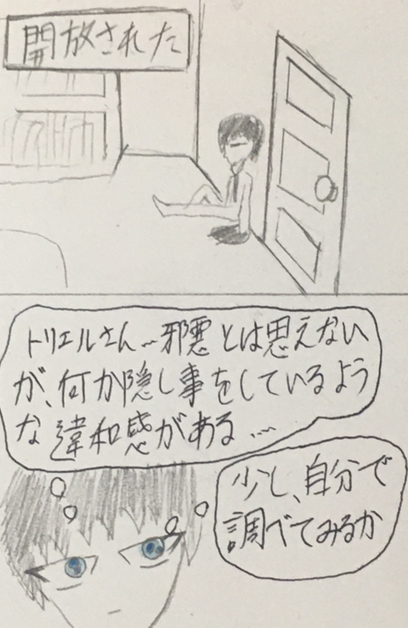 開放された
トリエルさん…邪悪とは思えない
が、何か隠し事をしているよう
な違和感がある…
少し、自分で
調べてみるか